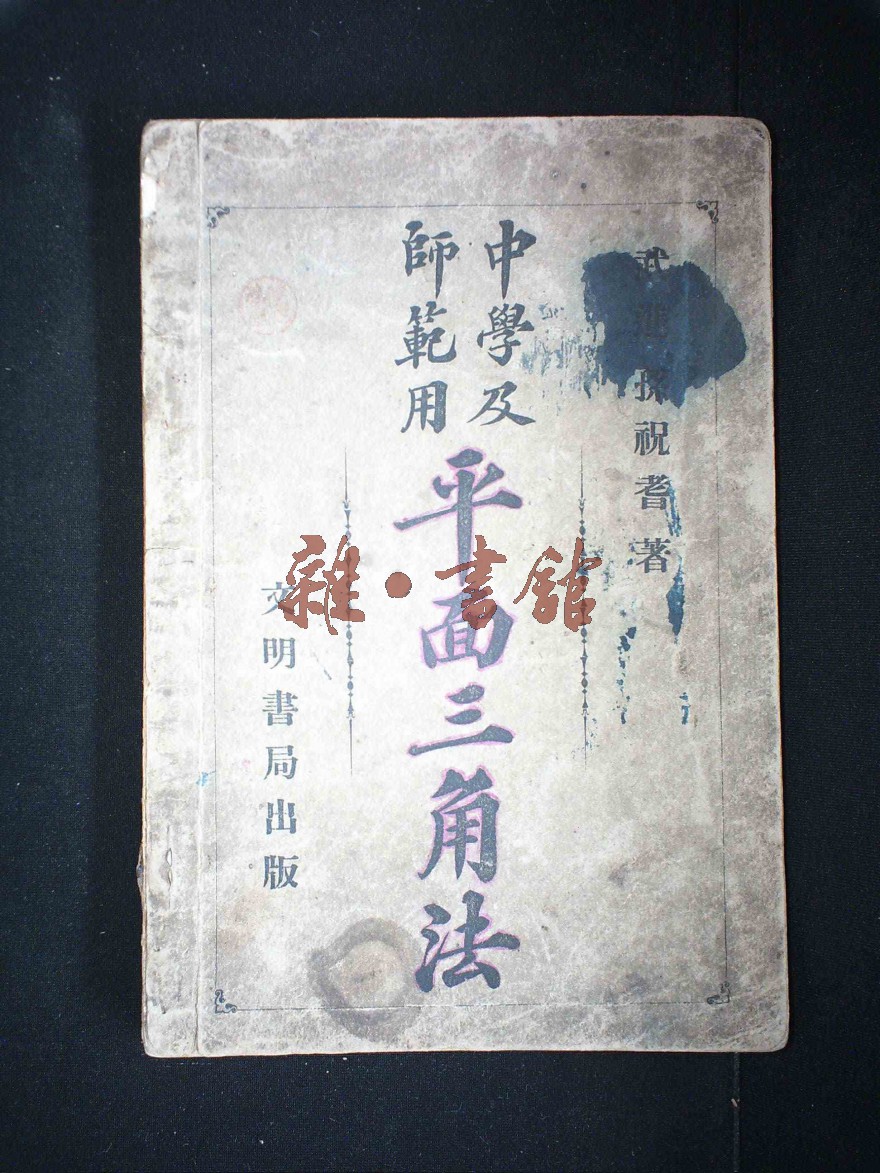 武進孫祝耆著
中學及
師範用
平面三角法
文明書局出版
雜·書館